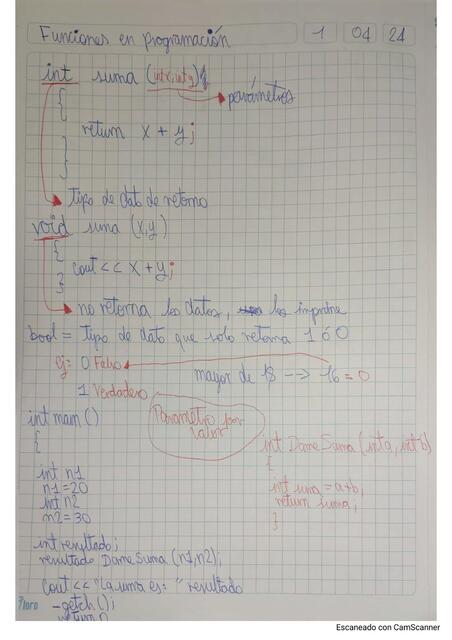 Funciones en programación 1 04 24
int suma (int x, int y)
{ parámetros
return x + y;
}
Tipo de dato de retorno
void suma (x,y)
{
cout << x + y;
}
no retorna los datos, los imprime
bool = Tipo de dato que solo retorna 1 ó 0
ej: 0 Falso
mayor de 18 --> 16 = 0
1 Verdadero
int main ()
{
Parametro por
valor
int DameSuma (int a, int b)
{
int suma = a+b;
return suma;
}
int n1
n1=20
int n2
n2=30
int resultado;
resultado DameSuma (n1,n2);
cout << "La suma es: " resultado
-getch();
return
Escaneado con CamScanner